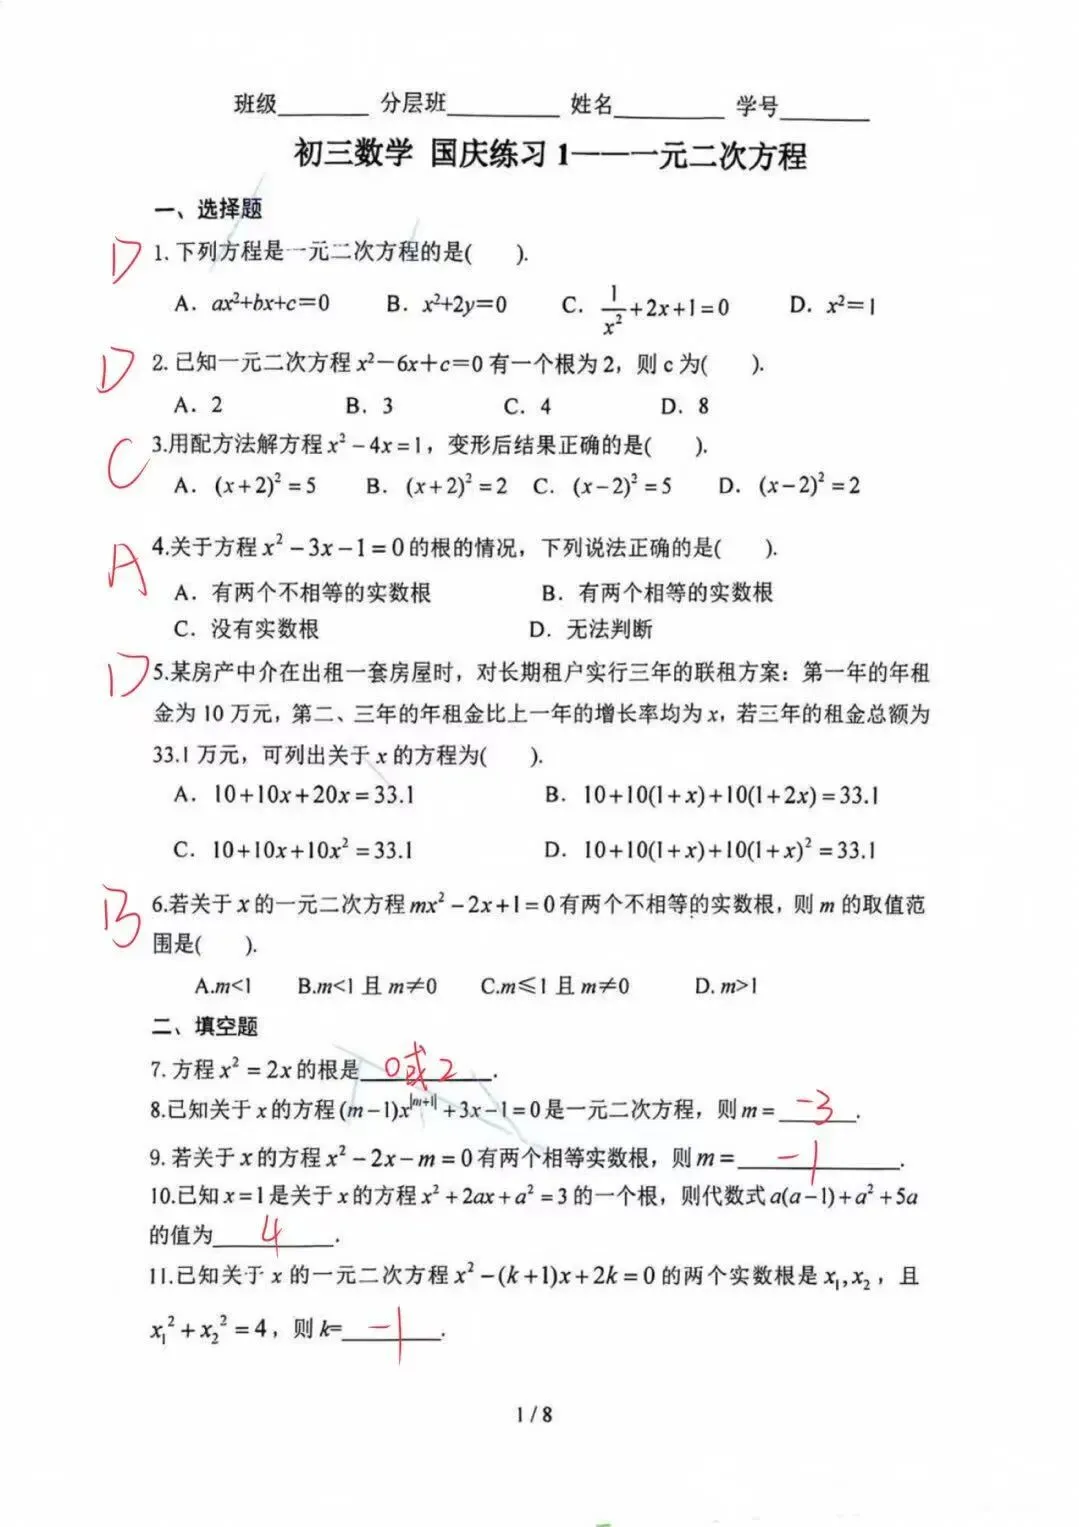 班级________ 分层班________ 姓名________ 学号________
初三数学 国庆练习1——一元二次方程
一、选择题
D 1. 下列方程是一元二次方程的是(  ).
A. ax²+bx+c=0 B. x²+2y=0 C. 1/x²+2x+1=0 D. x²=1
D 2. 已知一元二次方程 x²-6x+c=0 有一个根为 2，则 c 为(  ).
A. 2 B. 3 C. 4 D. 8
C 3.用配方法解方程 x²-4x=1，变形后结果正确的是(  ).
A. (x+2)²=5 B. (x+2)²=2 C. (x-2)²=5 D. (x-2)²=2
A 4.关于方程 x²-3x-1=0 的根的情况，下列说法正确的是(  ).
A. 有两个不相等的实数根 B. 有两个相等的实数根
C. 没有实数根 D. 无法判断
D 5.某房产中介在出租一套房屋时，对长期租户实行三年的联租方案：第一年的年租
金为 10 万元，第二、三年的年租金比上一年的增长率均为 x，若三年的租金总额为
33.1 万元，可列出关于 x 的方程为(  ).
A. 10+10x+20x=33.1 B. 10+10(1+x)+10(1+2x)=33.1
C. 10+10x+10x²=33.1 D. 10+10(1+x)+10(1+x)²=33.1
B 6.若关于 x 的一元二次方程 mx²-2x+1=0 有两个不相等的实数根，则 m 的取值范
围是(  ).
A.m<1 B.m<1 且 m≠0 C.m≤1 且 m≠0 D. m>1
二、填空题
7. 方程 x²=2x 的根是 0或2 .
8.已知关于 x 的方程 (m-1)x^|m+1|+3x-1=0 是一元二次方程，则 m= -3 .
9. 若关于 x 的方程 x²-2x-m=0 有两个相等实数根，则 m= -1 .
10.已知 x=1 是关于 x 的方程 x²+2ax+a²=3 的一个根，则代数式 a(a-1)+a²+5a
的值为 4 .
11.已知关于 x 的一元二次方程 x²-(k+1)x+2k=0 的两个实数根是 x₁,x₂，且
x₁²+x₂²=4，则 k= -1 .
1 / 8